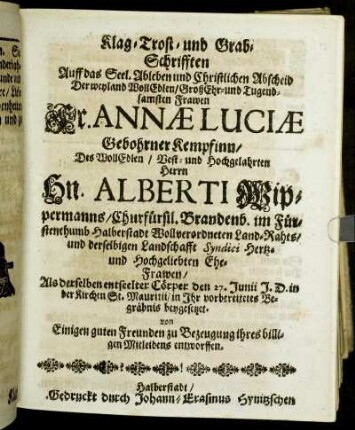 Klag-Trost- und Grab-
Schrifften
Auff das Seel. Ableben und Christlichen Abscheid
Der weyland WollEdlen/ GroßEhr- und Tugend-
samsten Frawen
Fr. ANNÆ LUCIÆ
Gebohrner Kempfinn/
Des WollEdlen/ Vest- und Hochgelahrten
Herrn
Hn. ALBERTI Wip-
permanns/ Churfürstl. Brandenb. im Für-
stenthumb Halberstadt Wollverordneten Land-Rahts/
und derselbigen Landschafft Syndici Hertz-
und Hochgeliebten Ehe-
Frawen/
Als derselben entseelter Cörper den 27. Junii J. D. in
der Kirchen St. Mauritii, in Ihr vorbereitetes Be-
gräbnis beygesetzet.
von
Einigen guten Freunden zu Bezeugung ihres billi-
gen Mitleidens entworffen.
Halberstadt/
Gedruckt durch Johann-Erasmus Hynitzschen